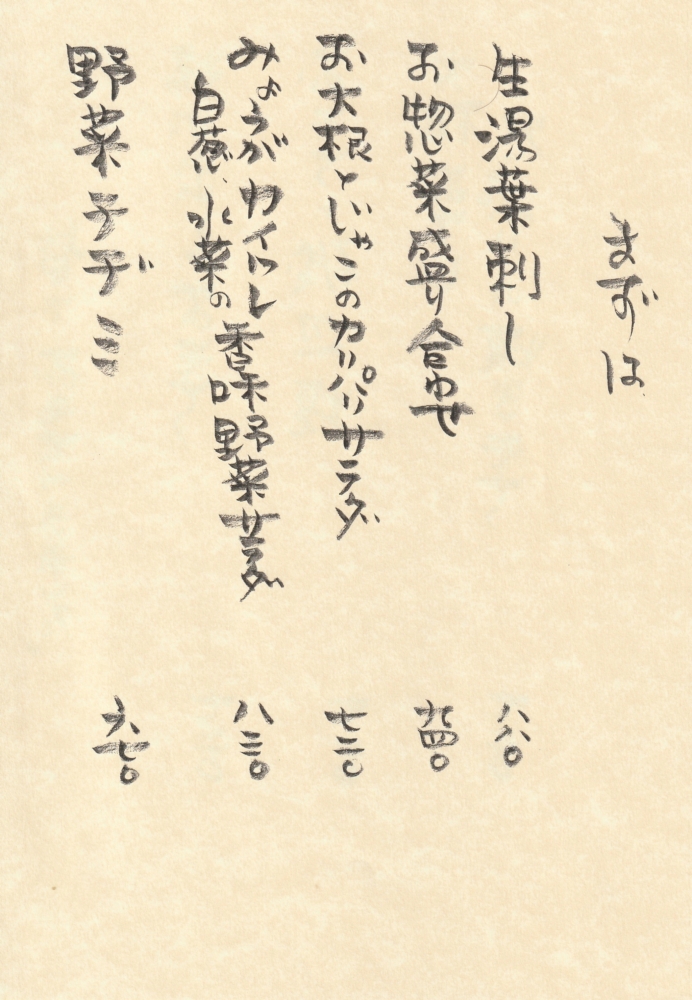 まずは
生湯葉刺し 八八〇
お惣菜盛り合わせ 九四〇
お大根とじゃこのカリパリサラダ 七二〇
みょうが カイワレ
白葱、水菜の香味野菜サラダ 八三〇
野菜チヂミ 六七〇